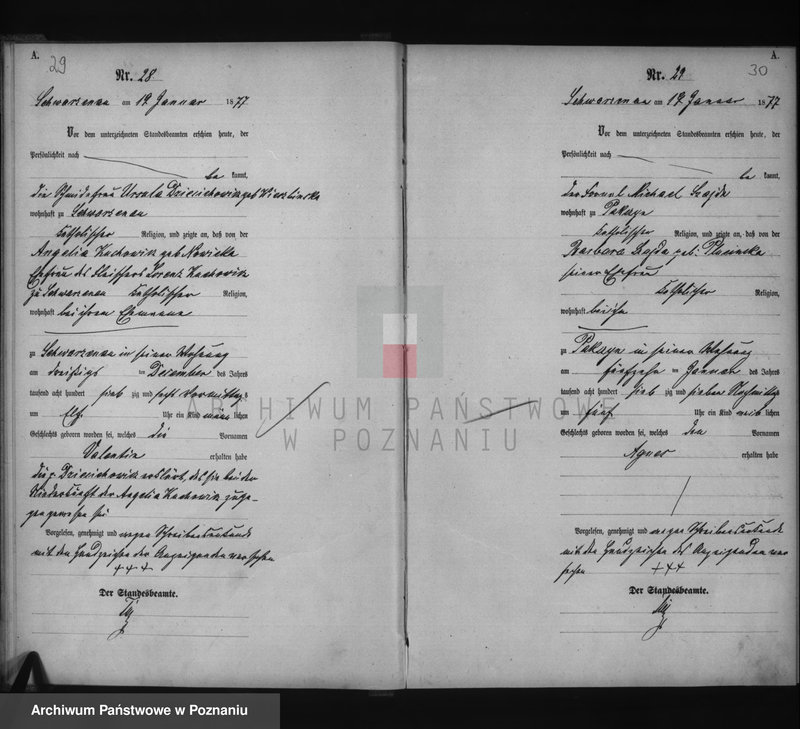 A.
29
Nr. 28
Schwarzenau am 19 Januar 1877
Vor dem unterzeichneten Standesbeamten erschien heute, der
Persönlichkeit nach
be kannt,
die Schmiedefrau Ursula geb
wohnhaft zu Schwarzenau
katholischer Religion, und zeigte an, daß von der
Angelia Kuchowik geb Nowicka
Ehefrau des Fleischers Lorenz Kuchowik
zu Schwarzenau katholischer Religion,
wohnhaft bei ihrem Ehemanne
zu Schwarzenau in seiner Wohnung
am dreißigs ten December des Jahres
tausend acht hundert sieb zig und sechs Vormittags
um Elf Uhr ein Kind männ lichen
Geschlechts geboren worden sei, welches die Vornamen
Valentin erhalten habe
die erklärt, daß sie bei der
Niederkunft der Angelia Kuchowik zuge-
gen gewesen sei
Vorgelesen, genehmigt und wegen Schreibensunkunde
mit den Handzeichen der Anzeigenden versehen
+++
Der Standesbeamte.
A.
30
Nr. 29
Schwarzenau am 19 Januar 1877
Vor dem unterzeichneten Standesbeamten erschien heute, der
Persönlichkeit nach
be kannt,
der Fornal Michael
wohnhaft zu Pakszyn
katholischer Religion, und zeigte an, daß von der
Barbara geb:
seiner Ehefrau
katholischer Religion,
wohnhaft bei ihm
zu Pakszyn in seiner Wohnung
am fünfzehn ten Januar des Jahres
tausend acht hundert sieb zig und sieben Nachmittags
um fünf Uhr ein Kind weib lichen
Geschlechts geboren worden sei, welches den Vornamen
Agnes erhalten habe
Vorgelesen, genehmigt und wegen Schreibensunkunde
mit den Handzeichen des Anzeigenden ver
sehen +++
Der Standesbeamte.
ARCHIWUM PAŃSTWOWE
W POZNANIU
Archiwum Państwowe w Poznaniu